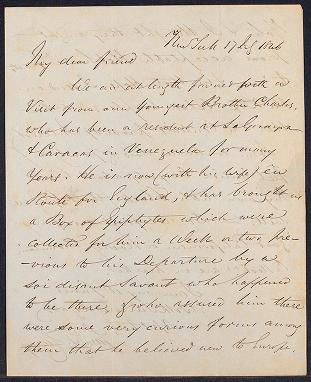 New York 17 July 1846
My dear friend
We are at length favored with a
Visit from our Youngest Brother Charles,
who has been a resident at La Guayra
& Caracas in Venezuela for many
Years. He is now (with his wife) en
Route for England, & has brought us
a Box of Epiphytes which were
collected for him a Week or two pre-
-vious to his Departure by a
soi disant Savant who happened
to be there, & who assured him there
were some very curious forms among
them that he believed new to Europe.